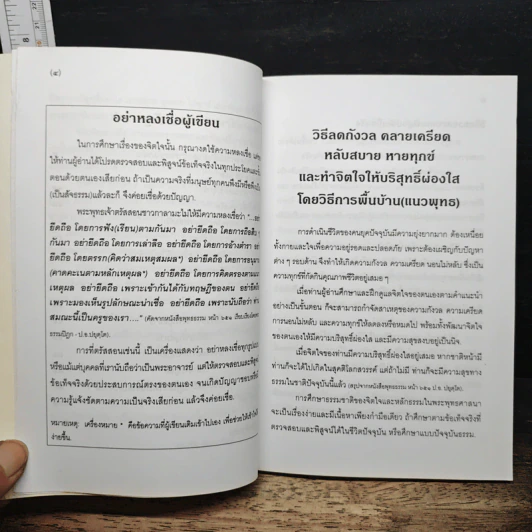 (๔)
อย่าหลงเชื่อผู้เขียน
ในการศึกษาเรื่องของจิตใจนั้น กรุณางดใช้ความหลงเชื่อ
ให้ท่านผู้อ่านได้โปรดตรวจสอบและพิสูจน์ข้อเท็จจริงในทุกประโยค
ตอนด้วยตนเองเสียก่อน ถ้าเป็นความจริงที่มนุษย์ทุกคนพึงมี
(เป็นสัจธรรม)แล้วละก็ จึงค่อยเชื่อด้วยปัญญา
พระพุทธเจ้าตรัสสอนชาวกาลามะไม่ให้มีความหลงเชื่อว่า
ยึดถือ โดยการฟัง(เรียน)ตามกันมา อย่ายึดถือ โดยการถือ
กันมา อย่ายึดถือ โดยการเล่าลือ อย่ายึดถือ โดยการอ้างตำรา
ยึดถือ โดยตรรก(คิดว่าสมเหตุสมผลเอง) อย่ายึดถือ โดยการ
(คาดคะเนตามหลักเหตุผล*) อย่ายึดถือ โดยการคิดตรองตาม
เหตุผล อย่ายึดถือ เพราะเข้ากันได้กับทฤษฎีของตน
เพราะมองเห็นรูปลักษณะน่าเชื่อ อย่ายึดถือ เพราะนับถือว่า
สมณะนี้เป็นครูของเรา...." (คัดจากหนังสือพุทธธรรม หน้า ๖๕๑
ปิฎก - ป.อ.ปยุตฺโต).
การที่ตรัสสอนเช่นนี้ เป็นเครื่องแสดงว่า อย่าหลงเชื่อ
หรือแม้แต่บุคคลที่เรานับถือว่าเป็นพระอาจารย์ แต่ให้ตรวจสอบ
ข้อเท็จจริงด้วยประสบการณ์ตรงของตนเอง จนเกิดปัญญา
ความรู้แจ้งชัดตามความเป็นจริงเสียก่อน แล้วจึงค่อยเชื่อ.
หมายเหตุ: เครื่องหมาย * คือข้อความที่ผู้เขียนเติมเข้าไปเอง เพื่อช่วยให้
ง่ายขึ้น.
วิธีลดกังวล คลายเครียด
หลับสบาย หายทุกข์
และทำจิตใจให้บริสุทธิ์ผ่องใส
โดยวิธีการพื้นบ้าน(แนวพุทธ)
การดำเนินชีวิตของคนยุคปัจจุบันมีความยุ่งยากมาก ต้องเหนื่อย
ทั้งกายและใจเพื่อความอยู่รอดและปลอดภัย เพราะต้องเผชิญกับปัญหา
ต่าง ๆ รอบด้าน จึงทำให้เกิดความกังวล ความเครียด นอนไม่หลับ ซึ่งเป็น
ความทุกข์ที่กัดกินคุณภาพชีวิตอยู่เสมอ ๆ
เมื่อท่านผู้อ่านศึกษาและฝึกดูแลจิตใจของตนเองตามคำแนะนำ
อย่างเป็นขั้นตอน ก็จะสามารถกำจัดสาเหตุของความกังวล ความเครียด
การนอนไม่หลับ และความทุกข์ให้ลดลงหรือหมดไป พร้อมทั้งพัฒนาจิตใจ
ของตนเองให้มีความบริสุทธิ์ผ่องใส และมีความสุขสงบอยู่เป็นนิจ.
เมื่อจิตใจของท่านมีความบริสุทธิ์ผ่องใสอยู่เสมอ หากชาติหน้ามี
ท่านก็จะได้ไปเกิดในสุคติโลกสวรรค์ แต่ถ้าไม่มี ท่านก็จะมีความสุขทาง
ธรรมในชาติปัจจุบันนี้แล้ว (สรุปจากหนังสือพุทธธรรม หน้า ๖๕๒ ป.อ. ปยุตฺโต).
การศึกษาธรรมชาติของจิตใจและหลักธรรมในพระพุทธศาสนา
จะเป็นเรื่องง่ายและมีเนื้อหาเพียงกำมือเดียว ถ้าศึกษาตามข้อเท็จจริงที่
ตรวจสอบและพิสูจน์ได้ในชีวิตปัจจุบัน หรือศึกษาแบบปัจจุบันธรรม.